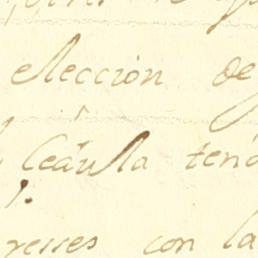 elección de
Ceáula tend
resses con la